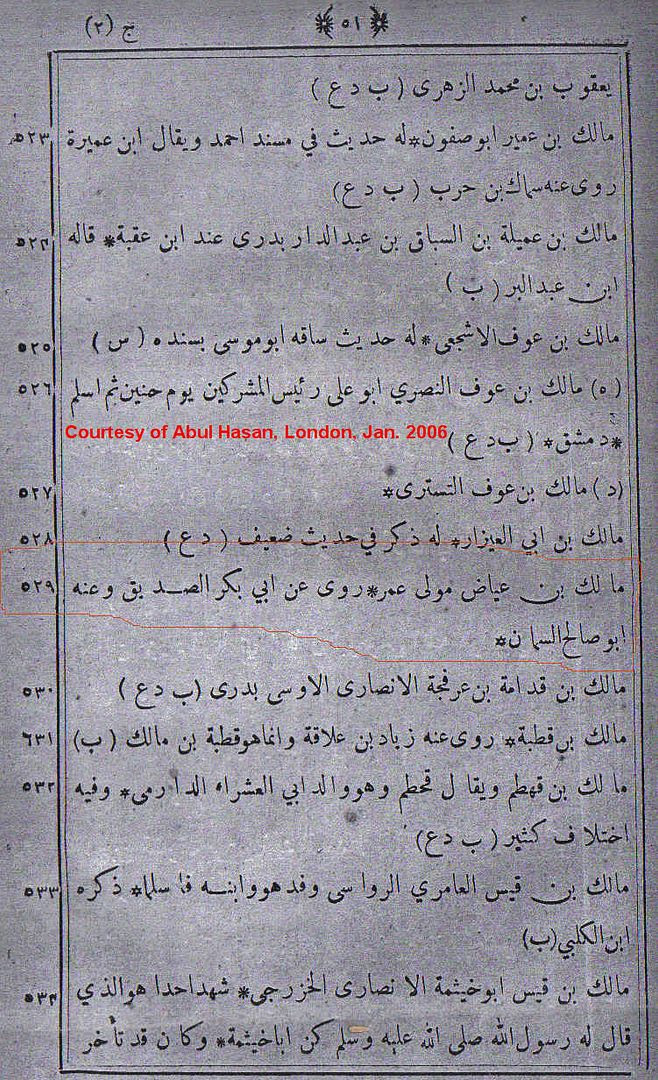 ج (٢)
❋ ٥١ ❋
يعقوب بن محمد الزهرى ( ب د ع )
مالك بن عمير ابو صفون * له حديث في مسند احمد ويقال ابن عميرة ٥٢٣
روى عنه سماك بن حرب ( ب د ع )
مالك بن عميلة بن السباق بن عبد الدار بدرى عند ابن عقبة * قاله ٥٢٤
ابن عبد البر ( ب )
مالك بن عوف الاشجعى * له حديث ساقه ابو موسى بسنده ( س ) ٥٢٥
( ه ) مالك بن عوف النصري ابو على رئيس المشركين يوم حنين ثم اسلم ٥٢٦
* دمشق * ( ب د ع )
Courtesy of Abul Hasan, London, Jan. 2006
( د ) مالك بن عوف التسترى * ٥٢٧
مالك بن ابي العيزار * له ذكر في حديث ضعيف ( د ع ) ٥٢٨
مالك بن عياض مولى عمر * روى عن ابي بكر الصديق وعنه ٥٢٩
ابو صالح السمان *
مالك بن قدامة بن عرفجة الانصارى الاوسى بدرى ( ب د ع ) ٥٣٠
مالك بن قطبة * روى عنه زياد بن علاقة وانما هو قطبة بن مالك ( ب ) ٦٣١
مالك بن قهطم ويقال قحطم وهو والد ابي العشراء الدارمى * وفيه ٥٣٢
اختلاف كثير ( ب د ع )
مالك بن قيس العامري الرواسى وفد هو وابنه فاسلما * ذكره ٥٣٣
ابن الكلبي ( ب )
مالك بن قيس ابو خيثمة الانصارى الخزرجي * شهد احدا هو الذي ٥٣٤
قال له رسول الله صلى الله عليه وسلم كن اباخيثمة * وكان قد تأخر